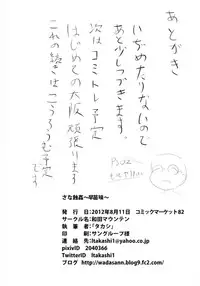 あとがき
いぢめたりないので
あと少しつづきます。
次はコミトレ予定
はじめての大阪頑張ります
これの続きはこうろうむ予定
です
さな触姦～早苗味～
発 行 日：2012年8月11日 コミックマーケット82
サークル名：和田マウンテン
執 筆 者：「タカシ」
印 刷：サングループ様
連 絡 先：ltakashi1@yahoo.co.jp
pixivID 2040366
TwitterID ltakashi1
ブログ http://wadasann.blog9.fc2.com/